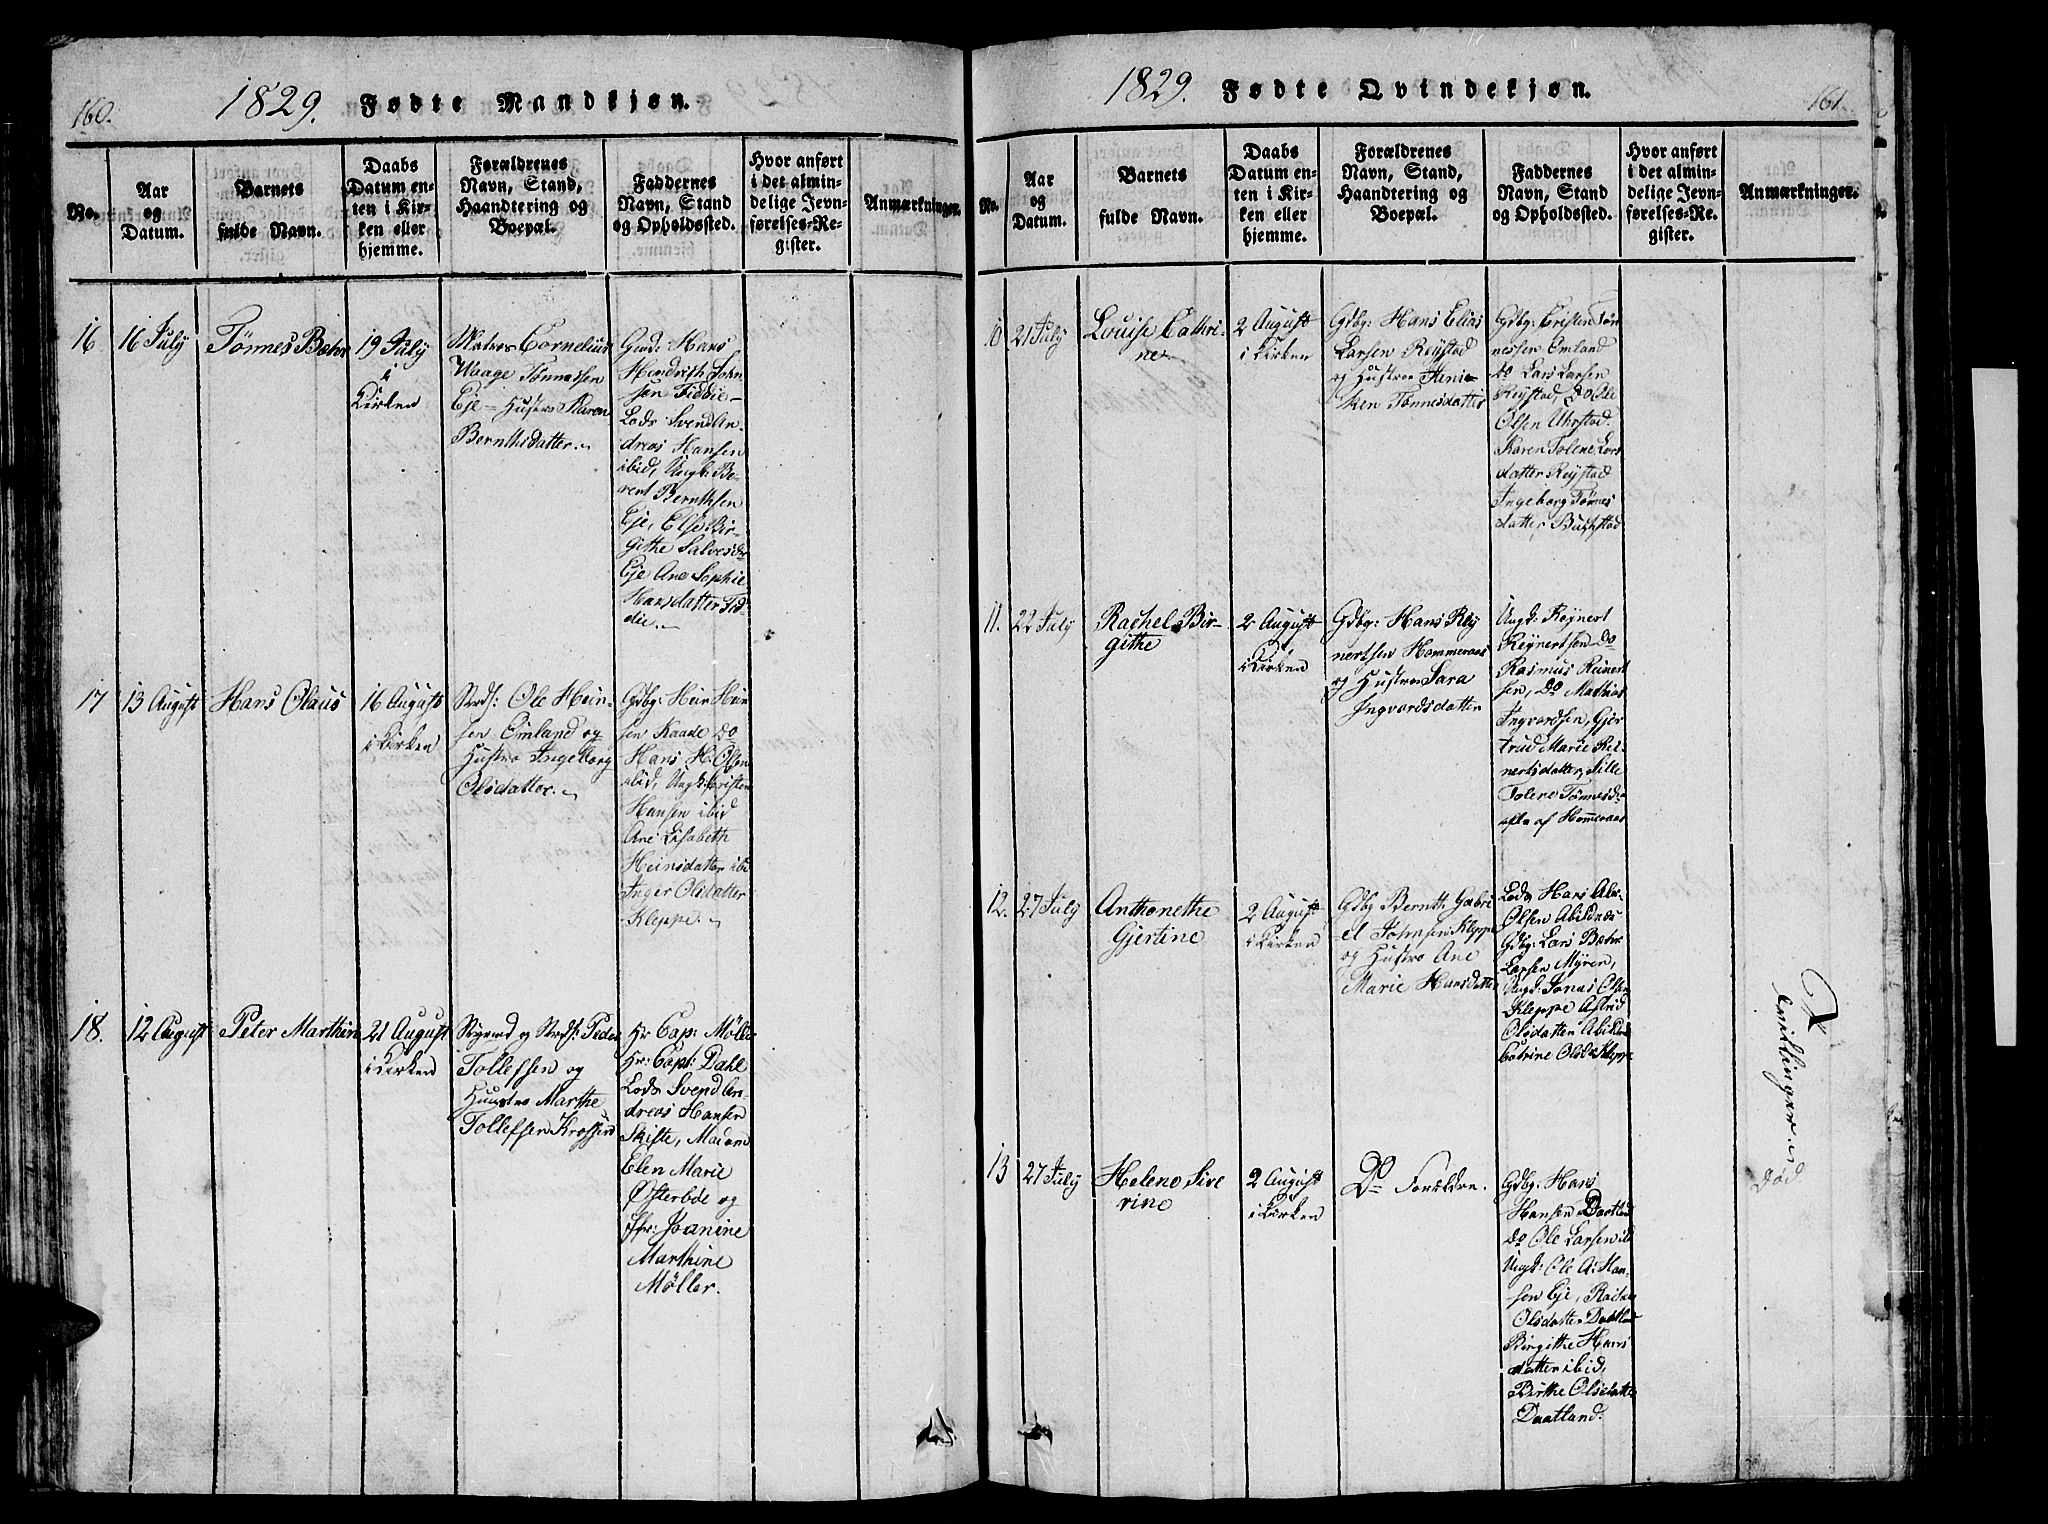 160.
1829. Fødte Mandkjøn.
No.
Aar
og
Datum.
Barnets
fulde Navn.
Daabs
Datum en-
ten i Kir-
ken eller
hjemme.
Forældrenes
Navn, Stand,
Haandtering og
Boepæl.
Faddernes
Navn, Stand
og Opholdssted.
Hvor anført
i det almin-
delige Jevn-
førelses-Re-
gister.
Anmærkninger.
16
16 July
Tønnes Bæhr
19 July
i
Kirken
Matros Cornelius
Waage Tønnessen
Eje - Hustro Karen
Bernthsdatter.
Hans
Hendrich John
sen Fiddie
Lods Svend An-
dreas Hansen
ibid, Ungk: Be-
rent Bernthsen
Eje, Else Bir-
githe Salvesdr
Eje Ane Sophie
Hansdatter Fid-
die.
17
13 August
Hans Olaus
16 August
i Kirken
Strdf: Ole Hein-
sen Omland og
Hustro Ingeborg
Olsdatter.
Gdbg: Hein Hein
sen Kaade do
Hans H. Olsen
ibid, Ungk: Cristen
Hansen ibid
Ane Lisabeth
Heinsdatter ibi
Inger Olsdatter
Kleppe.
18.
12 August
Peter Marthin
21 August
i Kirken
og Strdf: Peder
Tollefsen og
Hustro Marthe
Tollefsen
Hr Cap: Møller
Hr: Capt: Dahl
Lods Svend An-
dreas Hansen
Skifte, Madam
Elen Marie
Østerbøe og
Jfr: Joanine
Marthine
Møller.
1829. Fødte Qvindekjøn.
161.
No.
Aar
og
Datum.
Barnets
fulde Navn.
Daabs
Datum en-
ten i Kir-
ken eller
hjemme.
Forældrenes
Navn, Stand,
Haandtering og
Boepæl.
Faddernes
Navn, Stand
og Opholdssted.
Hvor anført
i det almin-
delige Jevn-
førelses-Re-
gister.
Anmærkninger.
10
21 July
Louise Cathri-
ne
2 August
i Kirken
Gdbg: Hans Elias
Larsen Reÿstad
og Hustroe Heni-
ken Tønnesdatter
Gdbg: Cristen Tøn
nessen Omland
do Lars Larsen
Reÿstad, do Ole
Olsen Uhrstad.
Karen Tolene Lars
datter Reÿstad
Ingeborg Tønnes
datter
11.
22 July
Rachel Bir-
githe
2 August
i Kirken
Gdbg: Hans Reÿ
nertsen Hommeraas
og Hustroe Sara
Ingvardsdatter
Ungk: Reÿnert
Reÿnertsen do
Rasmus Reinert
sen, do Mathias
Ingvardsen, Gjer
trud Marie Rei-
nertsdatter, Sille
Tolene Tønnesd
alle af Hommeraas
12.
27 July
Anthonethe
Gjertine
2 August
i Kirken
Gdbg Bernth Gabri
el Johnsen Kleppe
og Hustro Ane
Marie Hansdatter
Lods Hans Abr.
Olsen Abildnes
Gdbg: Lars Bæhr
Larsen Mÿren,
Ungk: Jonas Olsen
Kleppe Astrid
Olsdatter Abildnes
Catrine Olsd Kleppe
Tvillinger
13
27 July
Helene Sive
rine
2 August
i Kirken
Do Forældre.
Gdbg: Hans
Hansen Daatland
do Ole Larsen ib
Ungk: Ole A: Han-
sen Eje,
Olsdatter Daatland
Birgithe Hans
datter ibid,
Birthe Olsdatter
Daatland.
Død.